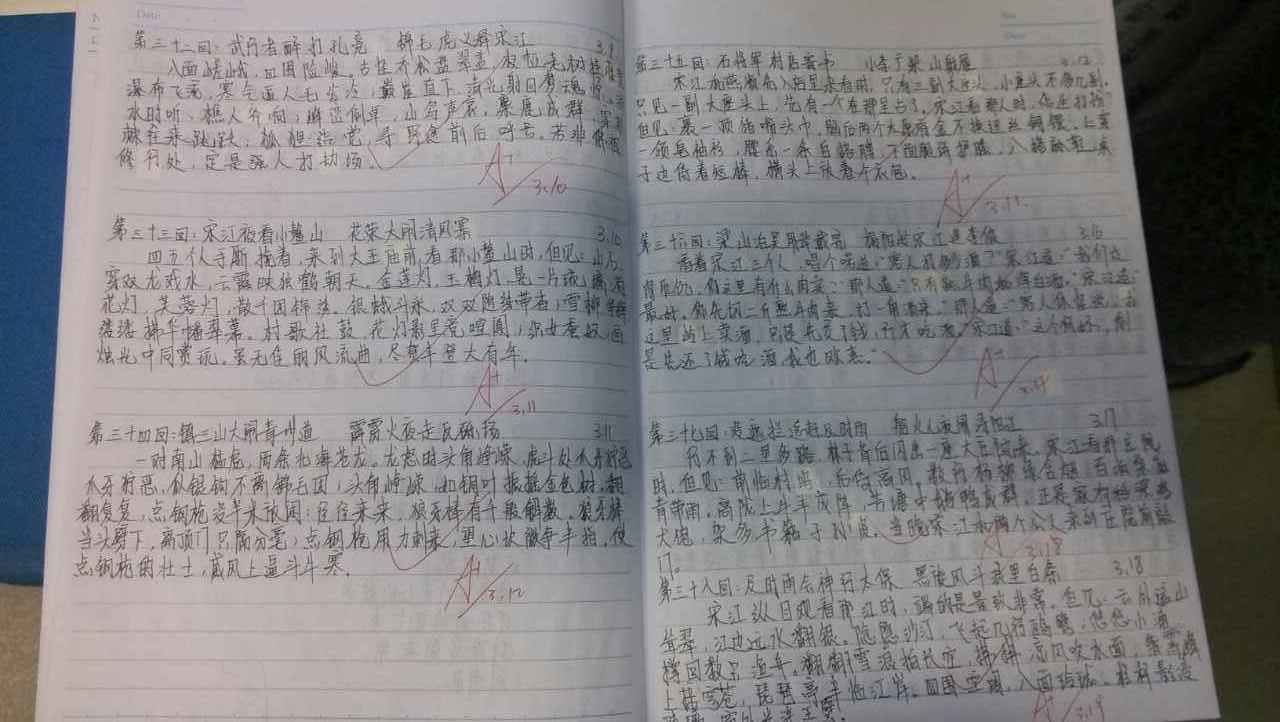 Date:
第三十二回:武行者醉打孔亮 锦毛虎义释宋江 3.9
八面嵯峨,四围险峻。古怪乔松盘翠盖,
瀑布飞流,寒气逼人毛发冷;巅崖直下,清光射目梦魂惊。
水时听,樵人斧响;峰峦倒卓,山鸟声哀。麋鹿成群,
穿荆棘往来跳跃,狐狸结党,寻野食前后呼号。若非佛祖
修行处,定是强人打劫场。
A+ 3.10
第三十三回:宋江夜看小鳌山 花荣大闹清风寨 3.10
四五个人手厮挽着,来到大王庙前,看那小鳌山时,但见:山石
穿双龙戏水,云霞映独鹤朝天。金莲灯,玉梅灯,晃一片琉璃;荷
花灯,芙蓉灯,散千团锦绣。银蛾斗彩,双双随绣带香球;雪柳争辉,
缕缕拂华幡翠幕。村歌社鼓,花灯影里竞喧阗;织妇蚕奴,画
烛光中同赏玩。虽无佳丽风流曲,尽贺丰登大有年。
A+ 3.11
第三十四回:镇三山大闹青州道 霹雳火夜走瓦砾场 3.11
一对南山猛虎,两条北海苍龙。龙怒时头角峥嵘,虎斗处爪牙狞恶。
爪牙狞恶,似银钩不离锦毛团;头角峥嵘,如铜叶振摇金色树。翻
翻复复,点钢枪没半米放闲;往往来来,狼牙棒有千般解数。狼牙棒
当头劈下,离顶门只隔分毫;点钢枪用力刺来,望心坎微争半指。使
点钢枪的壮士,威风上逼斗牛寒。
A+ 3.12
No.
Date
第三十五回:石将军村店寄书 小李广梁山射雁
宋江和燕顺先入店里来看时,只有三副大座头,小座头不多几副。
只见一副大座头上,先有一个在那里占了。宋江看那人时,怎生打扮?
但见:裹一顶猪嘴头巾,脑后两个太原府金不换纽丝铜镮。上穿
一领皂䌷衫,腰系一条白搭膊。下面腿絣护膝,八搭麻鞋,桌
子边倚着短棒,横头上放着个衣包。
A+
第三十六回:梁山泊吴用举戴宗 揭阳岭宋江逢李俊 3.16
看着宋江三个人,唱个喏道:
最好。你先切二斤熟牛肉来,打一角酒来。”那人道:
这里岭上卖酒,只是先交了钱,方才吃酒。”宋江道:“
是先还了钱吃酒,我也欢喜。”
A+
第三十七回:没遮拦追赶及时雨 船火儿夜闹浔阳江 3.17
行不到二里多路,
时,但见:前临村坞,后倚高冈。数行杨柳绿含烟,百顷桑麻
青带雨。高陇上牛羊成阵,芳塘中鹅鸭成群。正是家有稻粱鸡
犬饱,架多书籍子孙贤。当晚宋江和两个公人来到庄院前敲
门。
A+ 3.18
第三十八回:及时雨会神行太保 黑旋风斗浪里白条 3.18
宋江纵目观看那江时,端的是景致非常。但见:云外遥山
耸翠,江边远水翻银。隐隐沙汀,飞起几行鸥鹭;悠悠小浦,
撑回数只渔舟。翻翻雪浪拍长空,拂拂凉风吹水面。紫霄峰
上接穹苍,琵琶亭半临江岸。四围空阔,八面玲珑。栏杆影浸
A+ 3.19